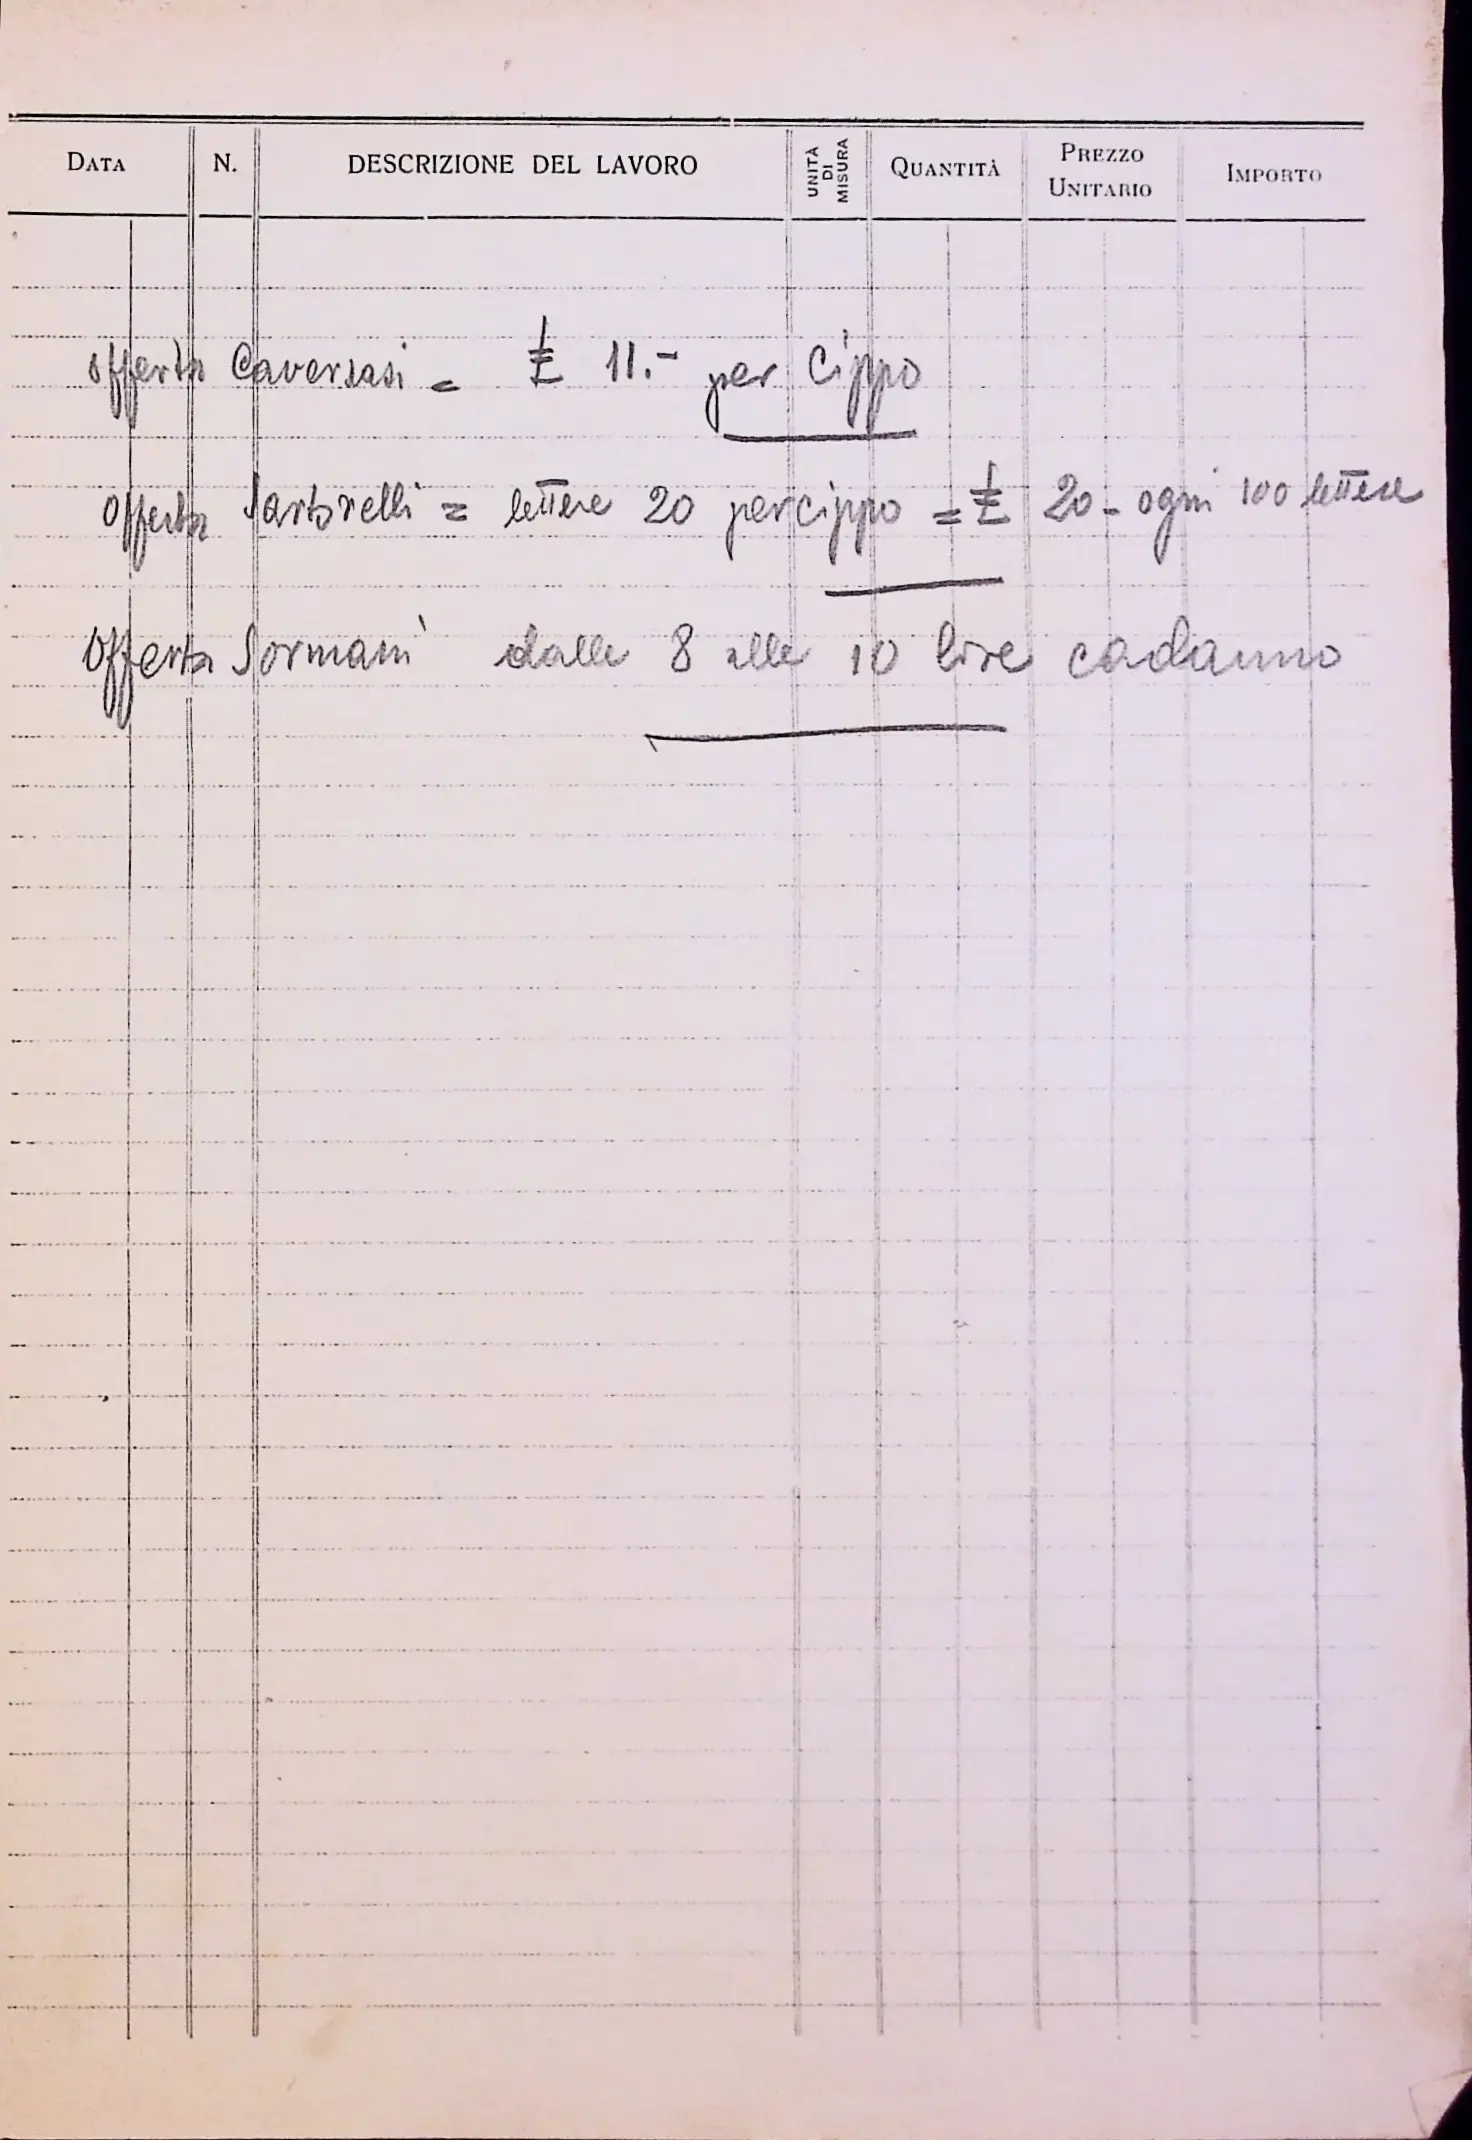 DATA N. DESCRIZIONE DEL LAVORO UNITÀ DI MISURA QUANTITÀ PREZZO UNITARIO IMPORTO
offerta Caversasi = £ 11.- per Cippo
Offerta Sartorelli = lettere 20 per cippo = £ 20 - ogni 100 lettere
Offerta Sormani dalle 8 alle 10 lire cadauno